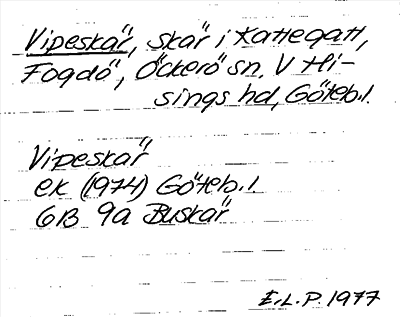 Vipeskär, skär i Kattegatt,
Fogdö, Öckerö sn. V Hi-
sings hd, Göteb.l.
Vipeskär
ek (1974) Göteb.l.
6B 9a Buskär
E.L.P. 1977